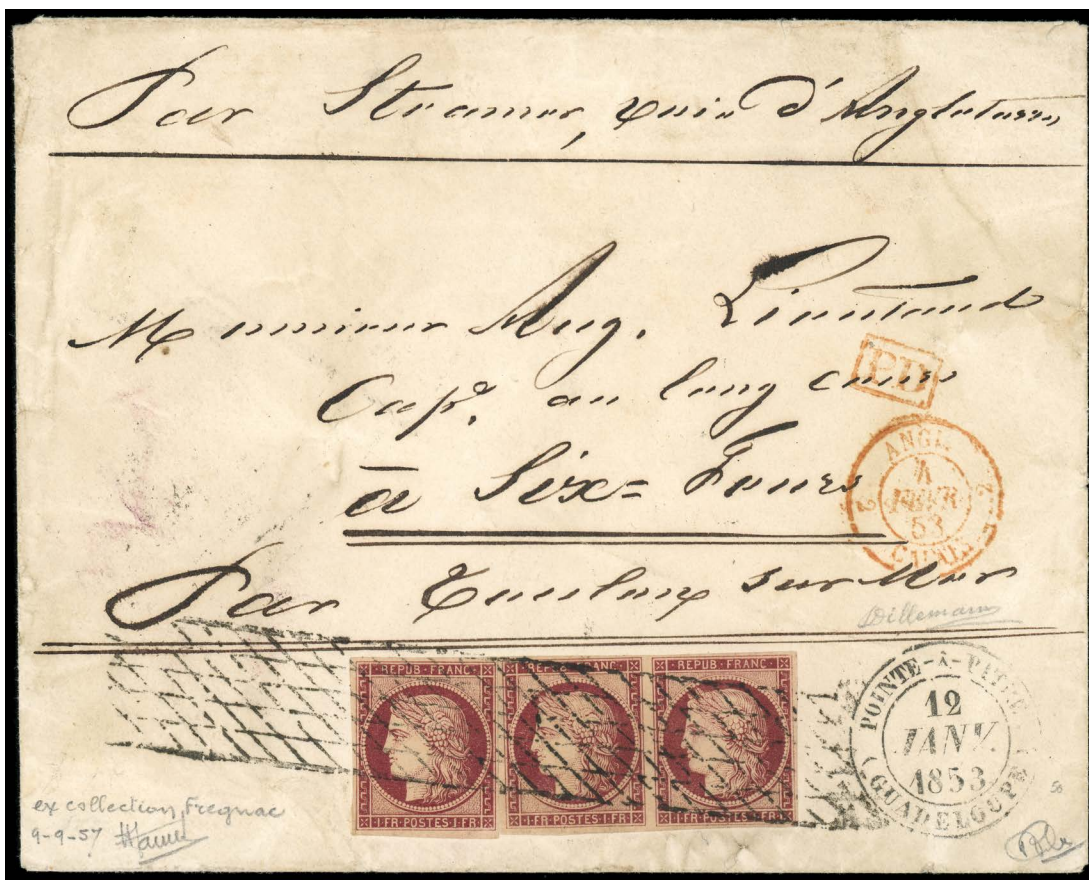 Par Steamer, voie d'Angleterre
Monsieur Aug. Lieutaud
Capne. au long cours
à Six=Fours
Par Toulon sur Mer
PD
ANGL.
4
FEVR.
53
2 2
CALAIS
Dillemann
REPUB·FRANC·
1·FR·POSTES·1·FR
REPUB·FRANC·
1·FR·POSTES·1·FR
REPUB·FRANC·
1·FR·POSTES·1·FR
POINTE-À-PITRE
12
JANV.
1853
(GUADELOUPE)
ex collection Fregnac
9-9-57